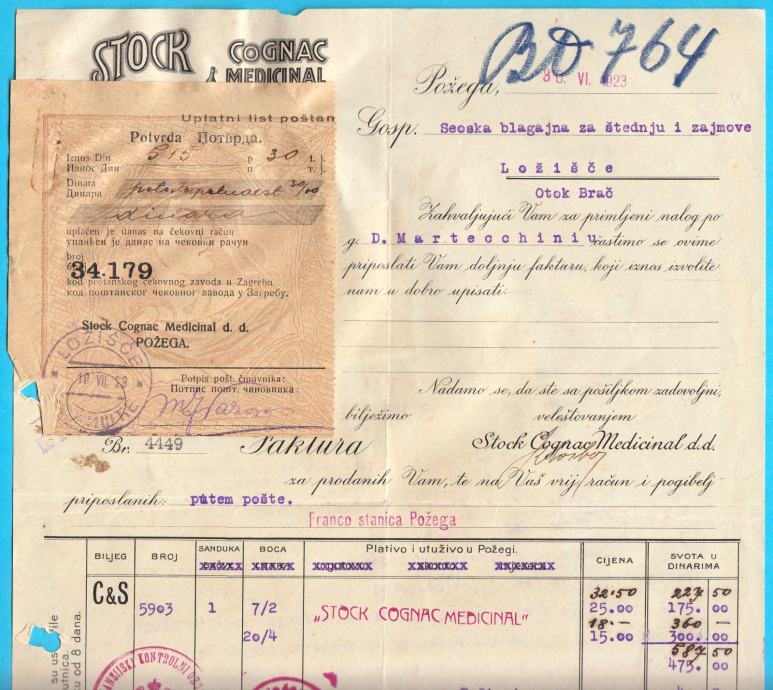 STOCK COGNAC
MEDICINAL
BD 764
Požega, 30. VI. 1923
Gosp. Seoska blagajna za štednju i zajmove
Ložišče
Otok Brač
Zahvaljujući Vam za primljeni nalog po
g. D. Martecchiniu častimo se ovime
priposlati Vam doljnju fakturu, koji iznos izvolite
nam u dobro upisati:
Uplatni list poštan
Potvrda Потврда.
Iznos Din 515 p 30 t. j.
Износ Дин п т. ј.
Dinara petstopetnaest 30/00
Динара
dinara
uplaćen je danas na čekovni račun
уплаћен је данас на чековни рачун
broj
34.179
kod poštanskog čekovnog zavoda u Zagrebu.
код поштанског чековног завода у Загребу.
Stock Cognac Medicinal d. d.
POŽEGA.
LOŽIŠĆE
Potpis pošt. činovnika:
Потпис пошт. чиновника:
Nadamo se, da ste sa pošiljkom zadovoljni,
bilježimo veleštovanjem
Stock Cognac Medicinal d.d.
Br. 4449 Faktura
za prodanih Vam, te na Vaš vrij račun i pogibelj
priposlanih: putem pošte.
Franco stanica Požega
Plativo i utuživo u Požegi.
BILJEG BROJ SANDUKA BOCA CIJENA SVOTA U DINARIMA
C&S
32·50 227 50
5903 1 7/2 „STOCK COGNAC MEDICINAL" 25.00 175.00
18·— 360 —
20/4 15.00 300.00
587 50
475.00
su us
tnica.
u od 8 dana.
KONTROLNI